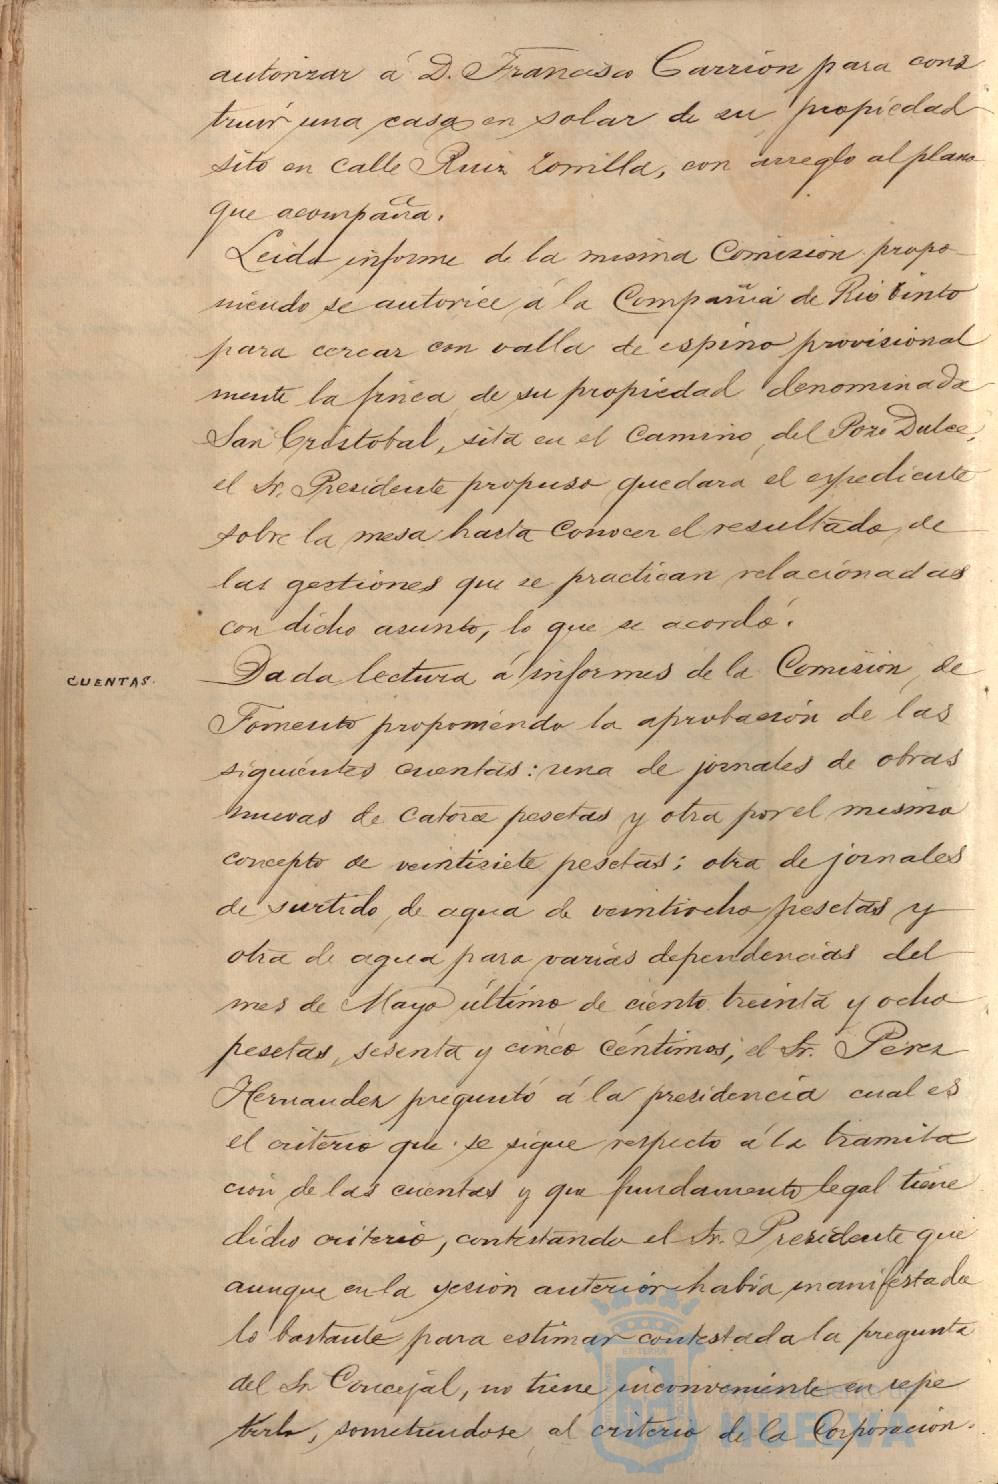 autorizar á D. Francisco Carrion para cons
truir una casa en solar de su propiedad
sito en calle Ruiz Zorrilla, con arreglo al plano
que acompaña.
Leido informe de la misma Comision propo-
niendo se autorice á la Compañia de Rio Tinto
para cercar con valla de espino provisional
mente la finca de su propiedad denominada
San Cristobal, sita en el Camino del Pozo Dulce,
el Sr. Presidente propuso quedara el expediente
sobre la mesa hasta conocer el resultado de
las gestiones que se practican relacionadas
con dicho asunto, lo que se acordó.
CUENTAS.
Dada lectura á informes de la Comisión de
Fomento proponiendo la aprobación de las
siguientes cuentas: una de jornales de obras
nuevas de catorce pesetas y otra por el mismo
concepto de veintisiete pesetas; otra de jornales
de surtido de agua de veintiocho pesetas y
otra de agua para varias dependencias del
mes de Mayo último de ciento treinta y ocho
pesetas, sesenta y cinco céntimos; el Sr. Perez
Hernandez preguntó á la presidencia cual es
el criterio que se sigue respecto á la tramita
ción de las cuentas y que fundamento legal tiene
dicho criterio, contestando el Sr. Presidente que
aunque en la sesion anterior habia manifestado
lo bastante para estimar contestada la pregunta
del Sr. Concejal, no tiene inconveniente en repe
tirlo, sometiendose al criterio de la Corporacion.
Ayuntamiento de
HUELVA